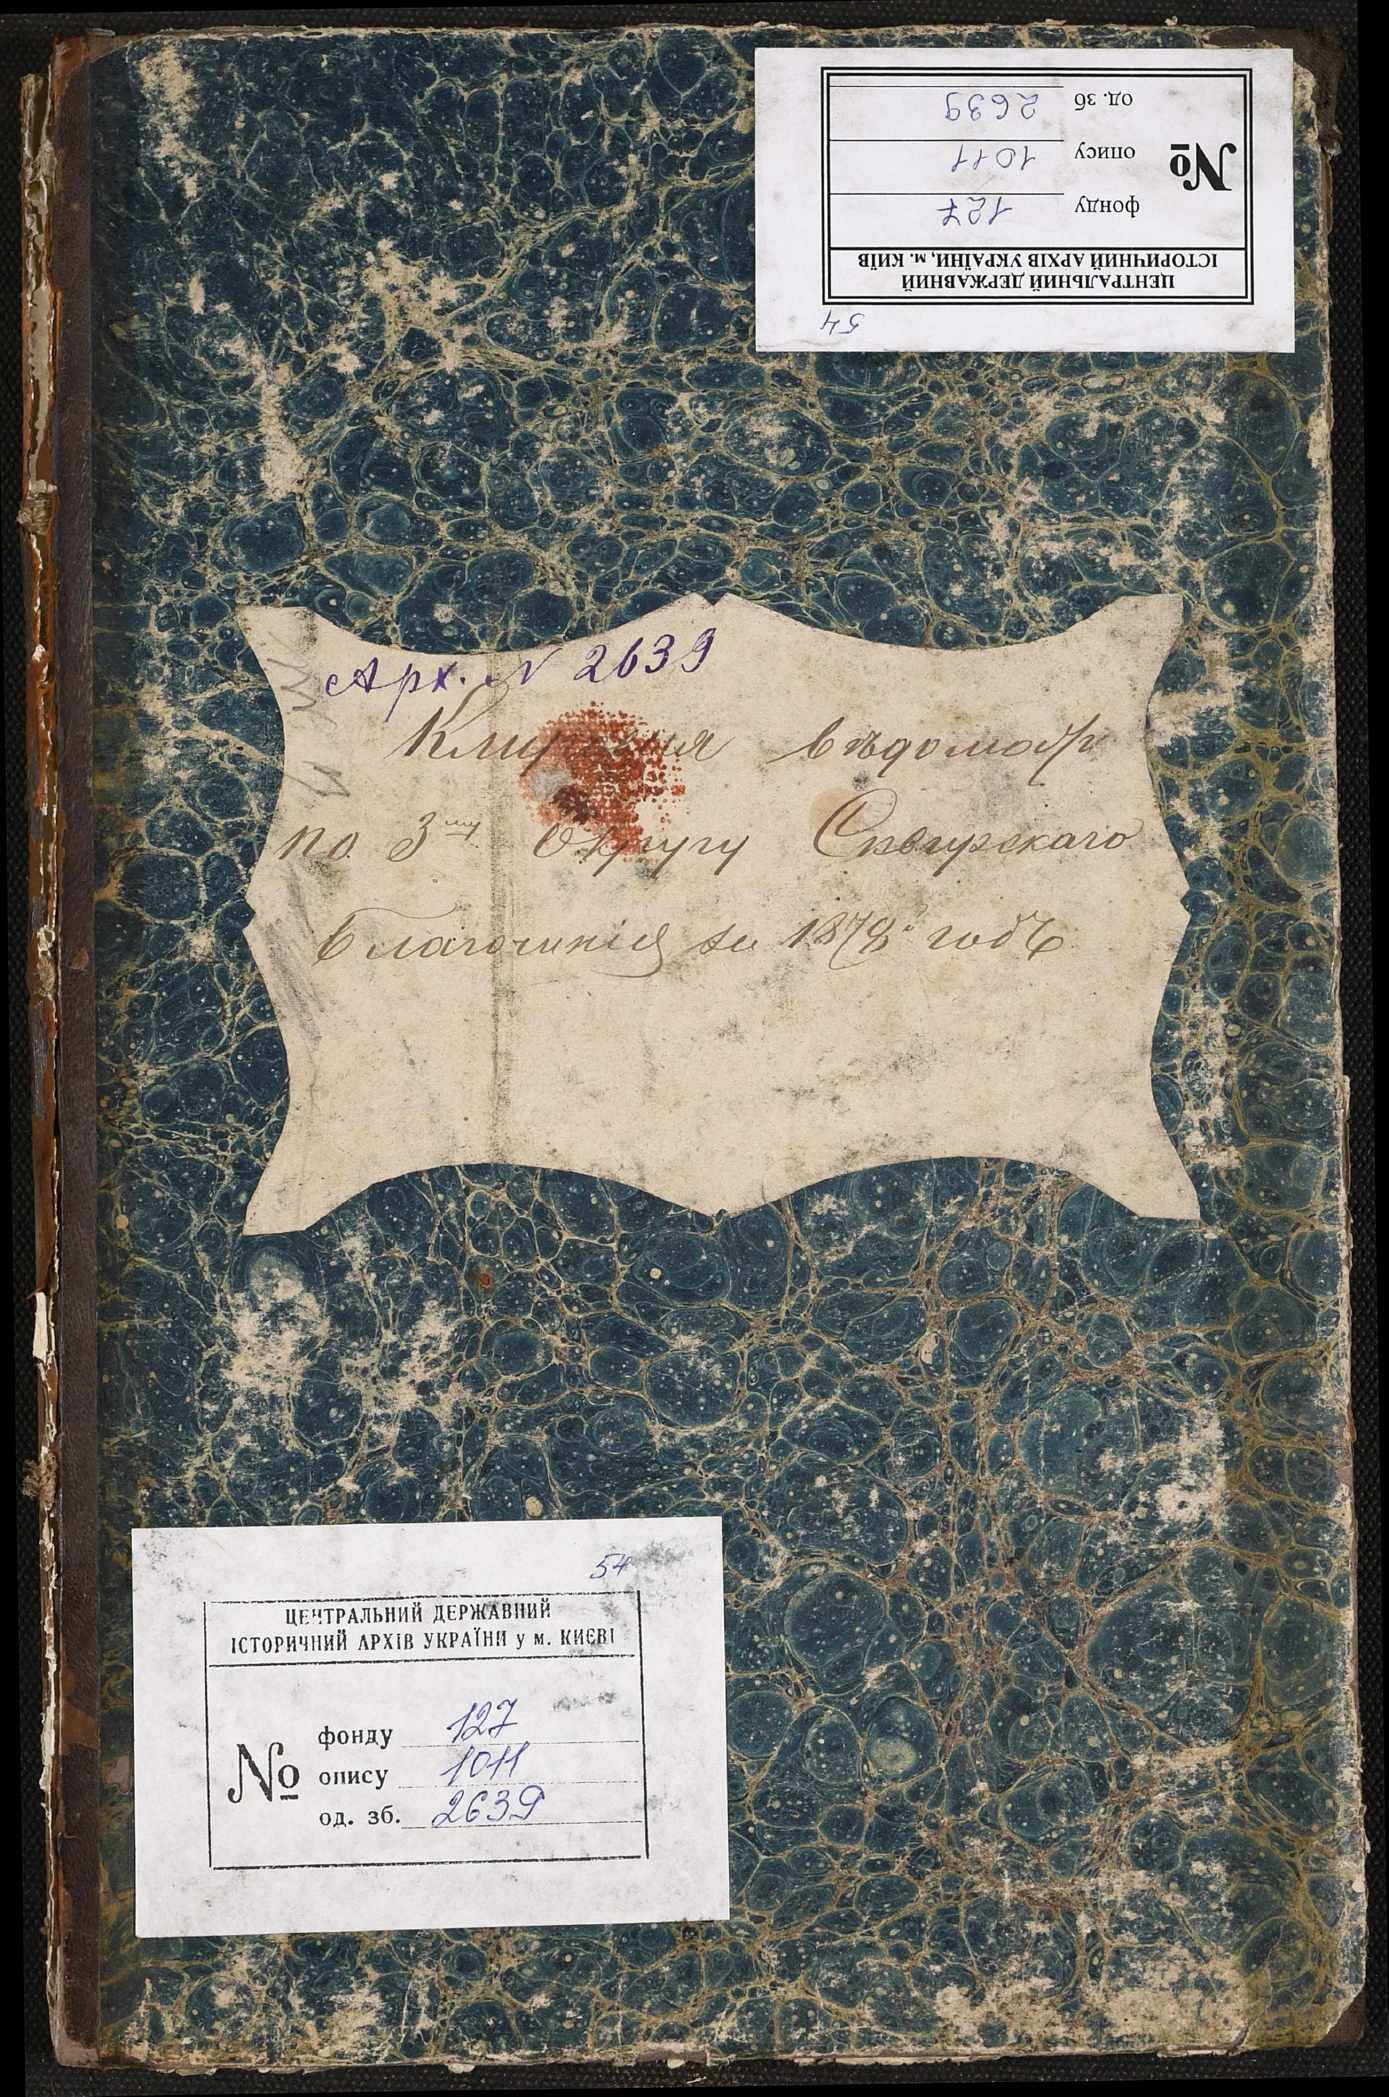 54
ЦЕНТРАЛЬНИЙ ДЕРЖАВНИЙ
ІСТОРИЧНИЙ АРХІВ УКРАЇНИ, м. КИЇВ
№
фонду 127
опису 1011
од. зб 2639
Арх. N 2639
Клировыя вѣдомости
по 3му Округу Сквирскаго
благочинія за 1878й годъ
54
ЦЕНТРАЛЬНИЙ ДЕРЖАВНИЙ
ІСТОРИЧНИЙ АРХІВ УКРАЇНИ у м. КИЄВІ
№
фонду 127
опису 1011
од. зб. 2639